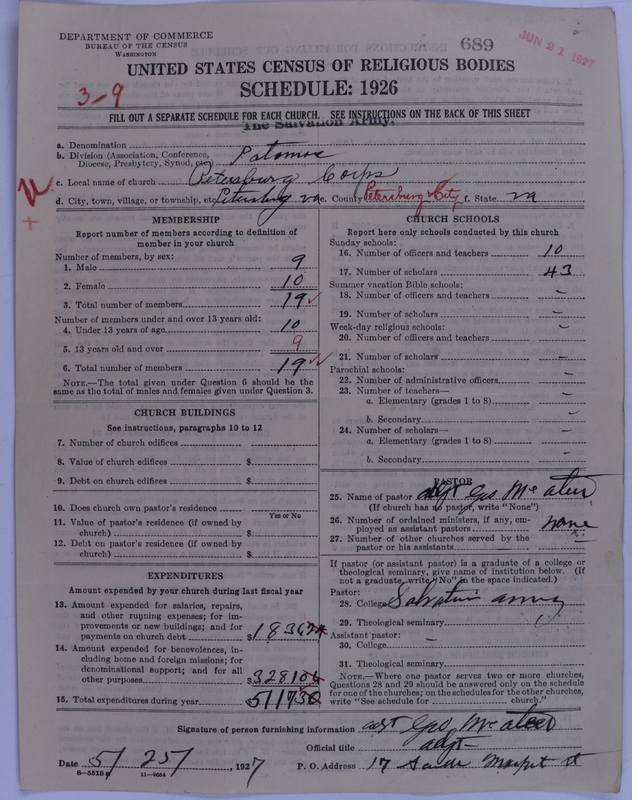 DEPARTMENT OF COMMERCE
BUREAU OF THE CENSUS
WASHINGTON
689
JUN 21 1927
UNITED STATES CENSUS OF RELIGIOUS BODIES
3-9
SCHEDULE: 1926
FILL OUT A SEPARATE SCHEDULE FOR EACH CHURCH. SEE INSTRUCTIONS ON THE BACK OF THIS SHEET
The Salvation Army.
a. Denomination
b. Division (Association, Conference, Diocese, Presbytery, Synod, etc.) Potomac
c. Local name of church Petersburg Corps
d. City, town, village, or township, etc. Petersburg Va e. County Petersburg City f. State Va
MEMBERSHIP
Report number of members according to definition of
member in your church
Number of members, by sex:
1. Male 9
2. Female 10
3. Total number of members 19
Number of members under and over 13 years old:
4. Under 13 years of age 10
5. 13 years old and over 9
6. Total number of members 19
NOTE.—The total given under Question 6 should be the
same as the total of males and females given under Question 3.
CHURCH BUILDINGS
See instructions, paragraphs 10 to 12
7. Number of church edifices
8. Value of church edifices $
9. Debt on church edifices $
10. Does church own pastor's residence
Yes or No
11. Value of pastor's residence (if owned by
church) $
12. Debt on pastor's residence (if owned by
church) $
EXPENDITURES
Amount expended by your church during last fiscal year
13. Amount expended for salaries, repairs,
and other running expenses; for im-
provements or new buildings; and for
payments on church debt $
14. Amount expended for benevolences, in-
cluding home and foreign missions; for
denominational support; and for all
other purposes $
15. Total expenditures during year
CHURCH SCHOOLS
Report here only schools conducted by this church
Sunday schools:
16. Number of officers and teachers 10
17. Number of scholars 43
Summer vacation Bible schools:
18. Number of officers and teachers –
19. Number of scholars –
Week-day religious schools:
20. Number of officers and teachers –
21. Number of scholars –
Parochial schools:
22. Number of administrative officers –
23. Number of teachers—
a. Elementary (grades 1 to 8) –
b. Secondary –
24. Number of scholars—
a. Elementary (grades 1 to 8) –
b. Secondary –
PASTOR
25. Name of pastor Adjt Geo McAteer
(If church has no pastor, write "None")
26. Number of ordained ministers, if any, em-
ployed as assistant pastors none
27. Number of other churches served by the
pastor or his assistants –
If pastor (or assistant pastor) is a graduate of a college or
theological seminary, give name of institution below. (If
not a graduate, write "No" in the space indicated.)
Pastor:
28. College Salvation Army
29. Theological seminary "
Assistant pastor:
30. College –
31. Theological seminary
NOTE.—Where one pastor serves two or more churches,
Questions 28 and 29 should be answered only on the schedule
for one of the churches; on the schedules for the other churches,
write "See schedule for church."
Signature of person furnishing information Adjt Geo McAteer
Official title Adjt
Date 5/25/ 1927 P. O. Address 17 South Market St
8-5518 a 11-9054